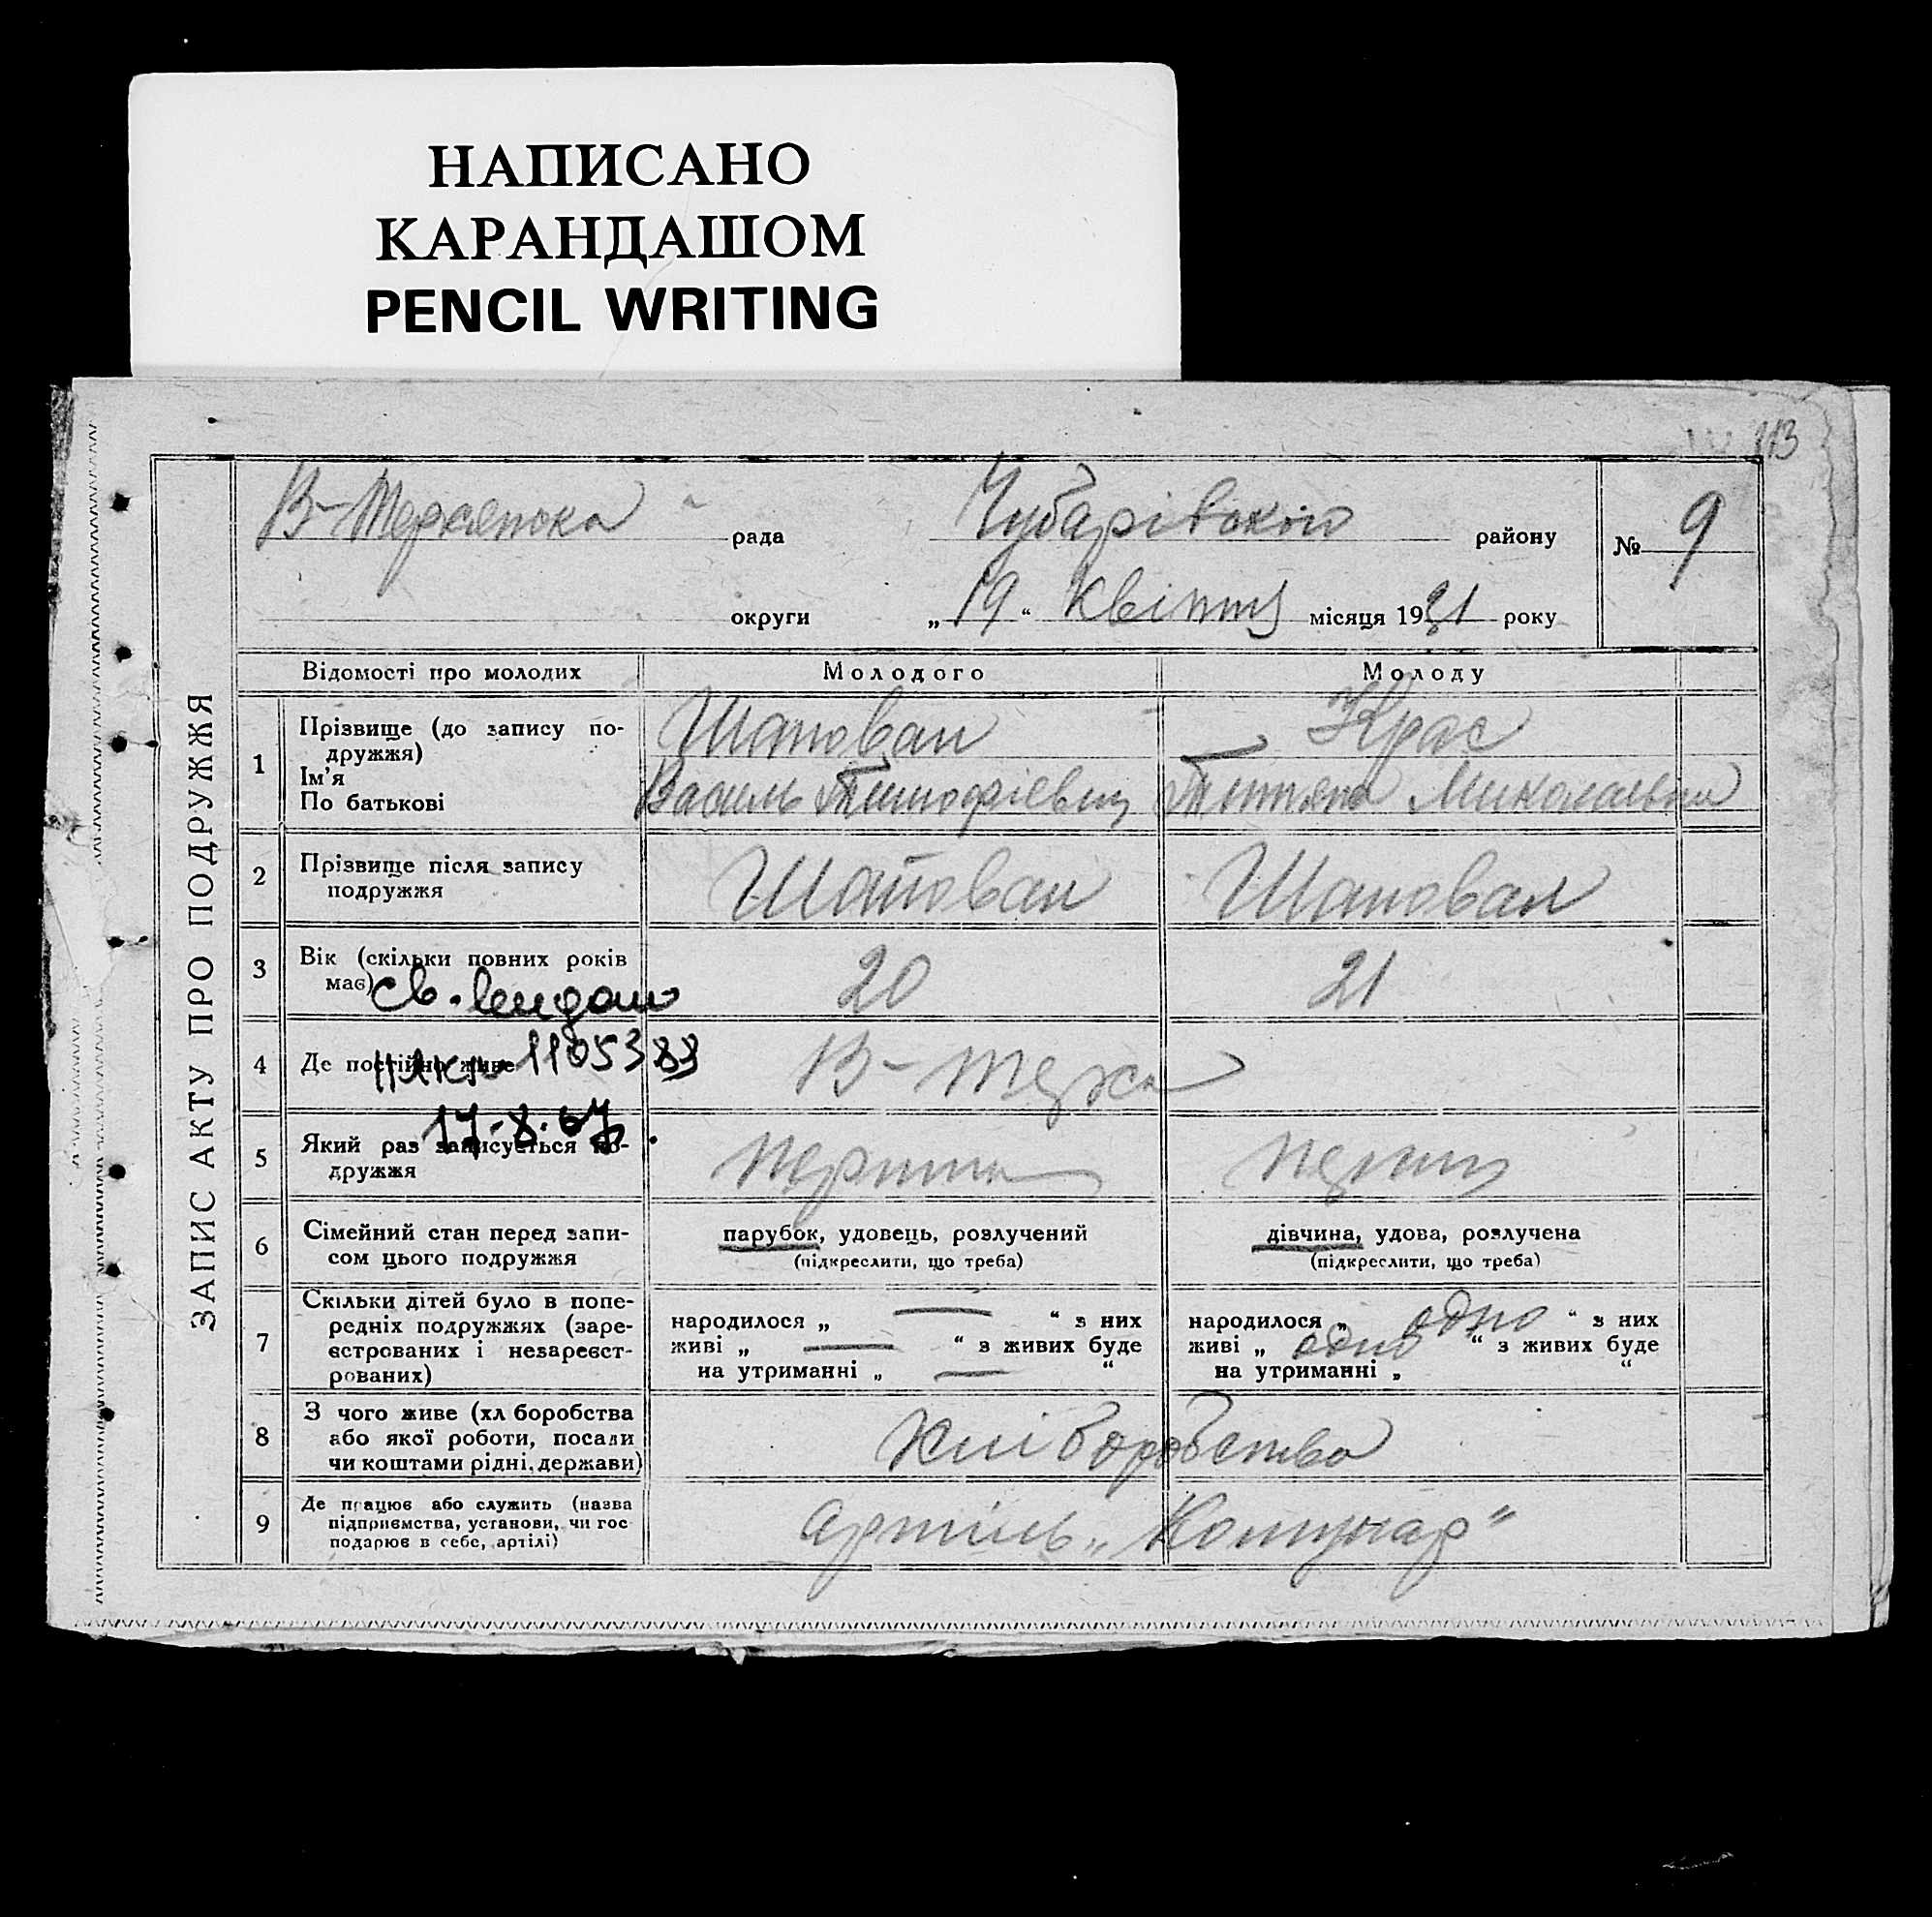 НАПИСАНО
КАРАНДАШОМ
PENCIL WRITING
113
ЗАПИС АКТУ ПРО ПОДРУЖЖЯ
рада Чубарівского району № 9
округи „19“ Квітня місяця 1931 року
Відомості про молодих Молодого Молоду
1 Прізвище (до запису по-
дружжя) Шаповал Крас
Ім'я
По батькові Василь Тимофієвич Тетяна Миколаївна
2 Прізвище після запису
подружжя Шаповал Шаповал
3 Вік (скільки повних років
має) 20 21
Св. видано
4 Де постійно живе
1105383
17-8-67.
5 Який раз записується по-
дружжя перший перший
6 Сімейний стан перед запи-
сом цього подружжя
парубок, удовець, розлучений
(підкреслити, що треба)
дівчина, удова, розлучена
(підкреслити, що треба)
7 Скільки дітей було в попе-
редніх подружжях (заре-
єстрованих і незареєст-
рованих)
народилося „ — “ з них
живі „ — “ з живих буде
на утриманні „ — “
народилося „ одно “ з них
живі „ одно “ з живих буде
на утриманні „ “
8 З чого живе (хл боробства
або якої роботи, посади
чи коштами рідні, держави)
Хліборобства
9 Де працює або служить (назва
підприємства, установи, чи гос
подарює в себе, артілі)
Артіль „Комунар“